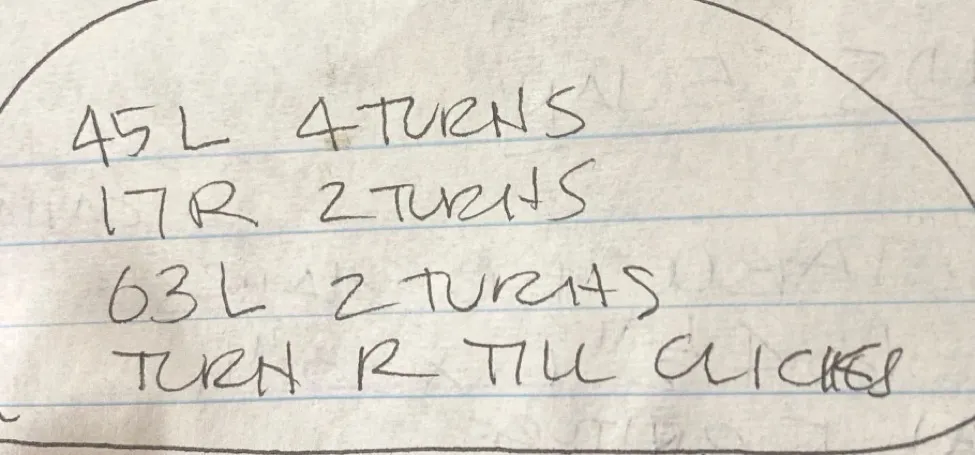 45L 4 TURNS
17R 2 TURNS
63L 2 TURNS
TURN R TILL CLICKES